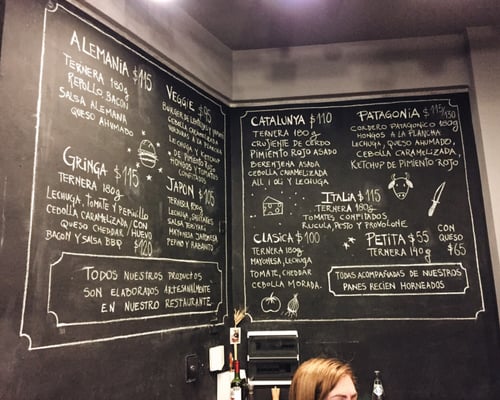 ALEMANIA $115
TERNERA 180g
REPOLLO, BACON
SALSA ALEMANA
QUESO AHUMADO
VEGGIE $95
CEBOLLA CARAMELIZADA
LECHUGA Y KETCHUP
GRINGA $115
TERNERA 180g
LECHUGA, TOMATE Y PEPINILLO
CEBOLLA CARAMELIZADA/CON
QUESO CHEDDAR/HUEVO
BACON Y SALSA BBQ $120
JAPON $105
TERNERA 180g
LECHUGA,
SALSA TERIYAKI
MAYONESA JAPONESA
PEPINO Y RABANITO
TODOS NUESTROS PRODUCTOS
SON ELABORADOS ARTESANALMENTE
EN NUESTRO RESTAURANTE.
CATALUNYA $110
TERNERA 180g
CRUJIENTE DE CERDO
PIMIENTO ROJO ASADO
BERENJENA ASADA
CEBOLLA CARAMELIZADA
ALL i OLi Y LECHUGA
PATAGONIA $115/130
CORDERO PATAGONICO 180g
HONGOS A LA PLANCHA
LECHUGA, QUESO AHUMADO,
CEBOLLA CARAMELIZADA,
KETCHUP DE PIMIENTO ROJO
ITALIA $115
TERNERA 180g
TOMATES CONFITADOS
RUCULA PESTO Y PROVOLONE
CLASICA $100
TERNERA 180g
MAYONESA, LECHUGA
TOMATE, CHEDDAR
CEBOLLA MORADA.
PETITA $55 CON
TERNERA 140g QUESO
$65
TODAS ACOMPAÑADAS DE NUESTROS
PANES RECIEN HORNEADOS